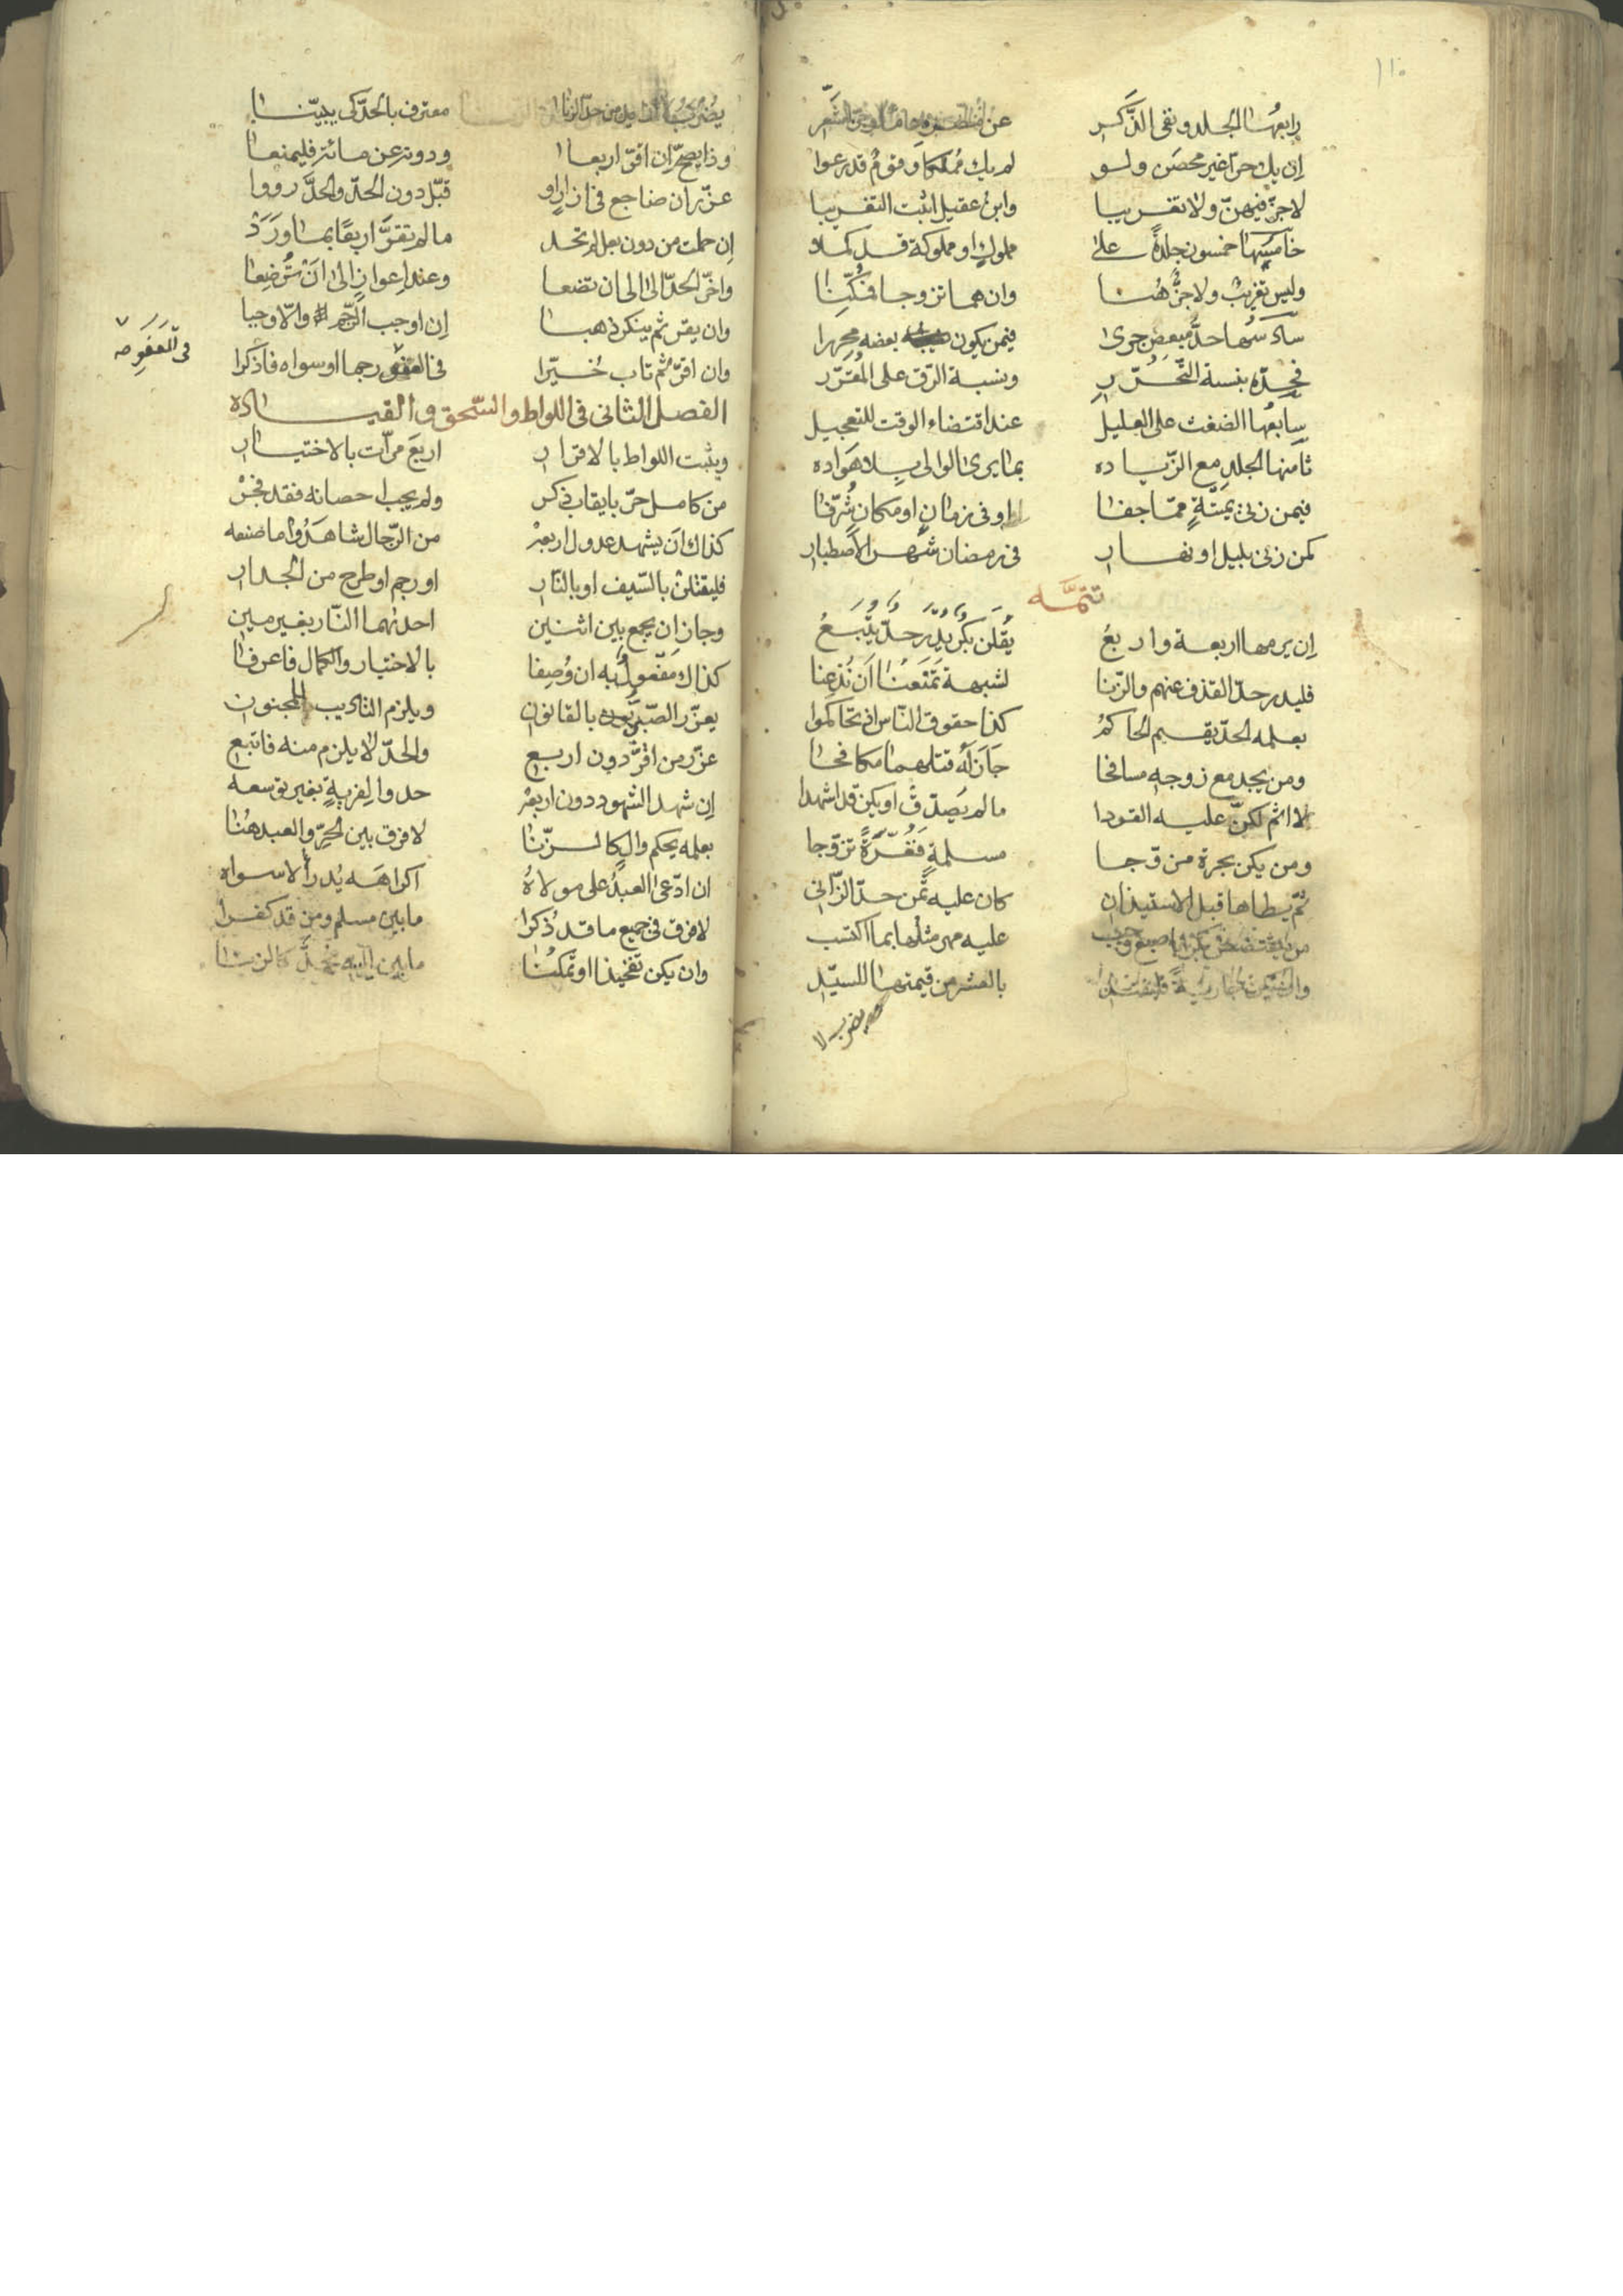 ١١٠
رابعُها الجلد ونفى الذَّكَر عن
إن يك حرّا غير محصَن ولو لم يك مُملكا وقومٌ قد رعوا
لا جزّ فيهنّ ولا تغريبا وابنُ عقيل اثبت التغريبا
خامسها خمسون جلدةً على مملوكٍ او مملوكة قد كملا
وليس تغريبٌ ولا جزٌّ هُنا وان هما تزوجا
سادسُها حدُّ مبعضٍ جرى فيمن يكون بعضه محررا
فحدّه بنسبة التّحرّر وبنسبة الرّق على المُقرّر
سابعُها الضغث على العليل عند اقتضاء الوقت للتعجيل
ثامنها الجلد مع الزّياده بما يرى الوالى بلا هَوَاده
فيمن زنى بميّتةٍ ممّا جفا او فى زمانٍ او مكانٍ شُرّفا
كمن زنى بليل او نهار فى رمضان شهر الاصطبار
تتمّه
إن يرمها اربعة واربعُ يُقلن بكرٌ
فليدر حدّ القذف عنهم والزّنا لشبهة تمنعنا أن نُذعنا
بعلمه الحدّ يقيم الحاكمُ كذا حقوق النّاس اذ تحاكموا
ومن يجد مع زوجه مسافحا جَازَ لَهُ قتلهما مكافحا
لا اثم لكنّ عليه القودا ما لم يُصدّق او يكن قد اشهدا
ومن يكن بحرة مزوّجا مسلمةٍ تزوّجا
ثمّ يطاها قبل الاستيذان كان عليه ثُمن حدّ الزّانى
من عليه مهر مثلها بما اكتسب
بالعشر من قيمتها للسيّد
يضرب لا
معترف بالحدّ كى يبيّنا
وذا يصحّ إن اقرّ اربعا ودونه عن مائة فليمنعا
عزّر ان ضاجع فى ازارٍ او قبّل دون الحدّ والحدَّ رووا
إن حملت من دون بعل لم تحد ما لم تقرَّ اربعًا بما وَرَدْ
واخّر الحدّ الى ان تضعا وعند اعواز الى انْ تُرضِعا
وان يقر ثم ينكر ذهبا إن اوجب الرّجم والّا وجبا
وان اقرّ ثُم تاب خُيّرا فى العفو رجما او سواه فاذكرا
فى العَفوِ صه
الفصل الثانى فى اللواط والسّحق والقياده
ويثبت اللواط بالاقرار اربعَ مرّات بالاختيار
من كامل حرّ بايقاب ذكر ولم يجب احصانه فقد فجرْ
كذاك أن يشهد عدول اربعهْ من الرّجال شاهَدُوا ما صنعه
فليقتلنْ بالسّيف او بالنّار او رجم او طرح من الجدار
وجاز ان يجمع بين اثنين احدهما النّار بغير مين
كذاك مَفعولٌ به ان وُصِفا بالاختيار والكمال فاعرفا
يعزّر الصّبىُّ بالقانون ويلزم التاديب للمجنون
عزّر من اقرَّ دون اربع والحدّ لا يلزم منه فاتبع
إن شهد الشهود دون اربعهْ حدوا لفريةٍ بغير توسعه
بعلمه يحكم والٍ كالزّنا لا فرق بين الحرّ والعبد هُنا
ان ادّعى العبدُ على مولاهُ اكراهَه يُدرأ لا سواه
لا فرق فى جميع ما قد ذُكرا ما بين مسلم ومن قد كفرا
وان يكن تفخيذا او تمكُنا ما بين كالزنا